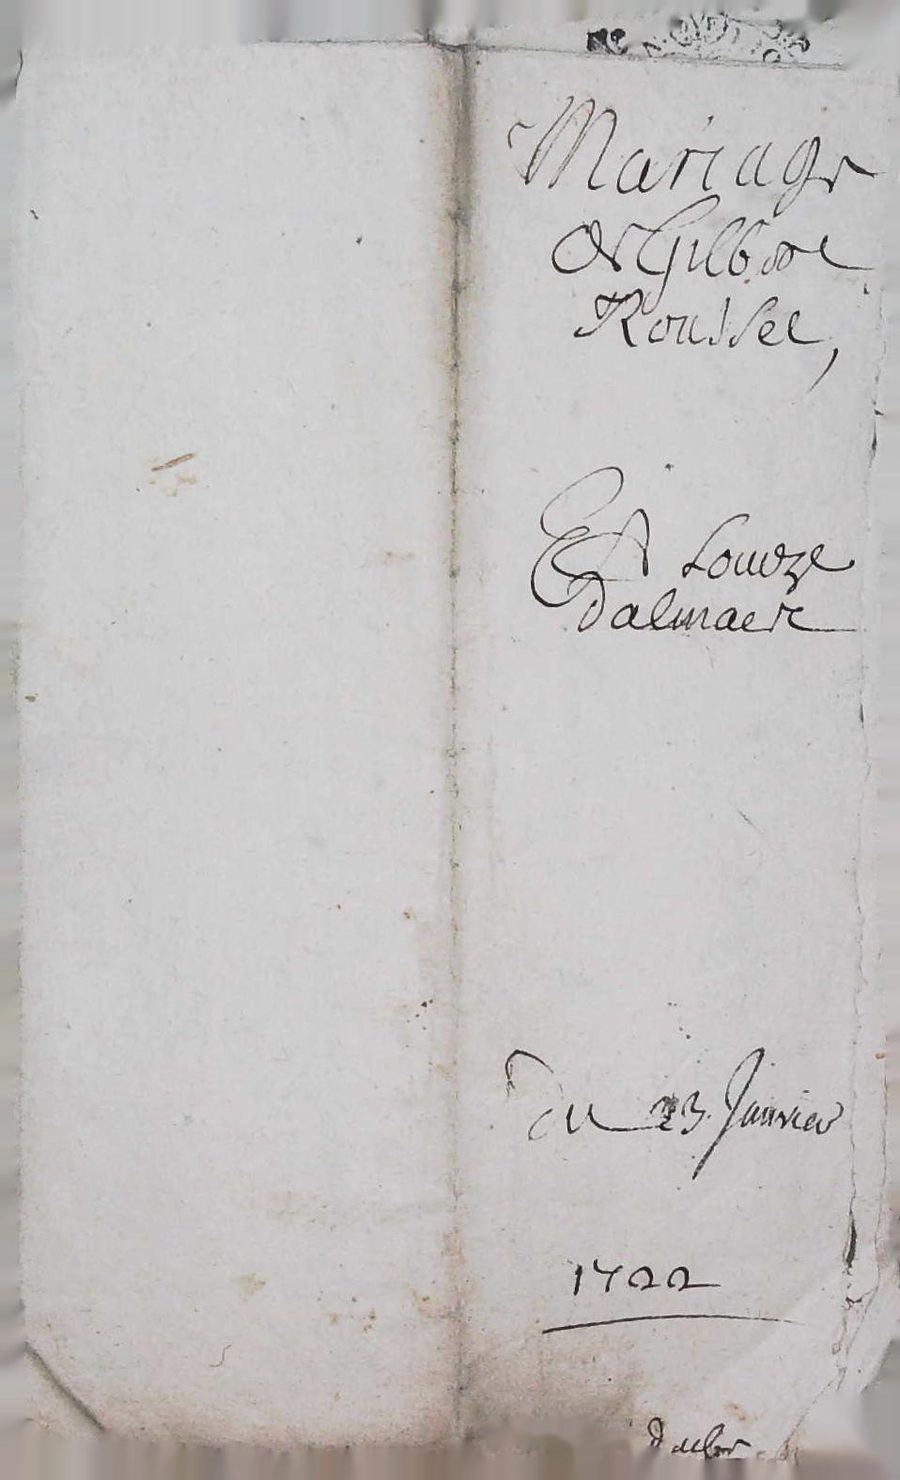 Mariage
de Gilbert
Roussel,
Et Louize
dalmaere
du 23 Janvier
1722